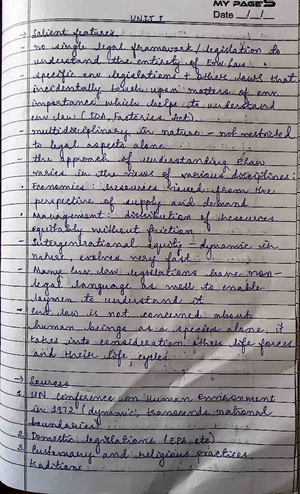 MY PAGES
Date / /
UNIT I
→ Salient features
- no single legal framework / legislation to
understand the entirety of Env law.
- specific env legislation + other laws that
incidentally touch upon matters of env.
importance which helps to understand
env law (IDA, Factories Act).
- multidisciplinary in nature - not restricted
to legal aspects alone
- the approach of understanding
varies in the views of various disciplines:
• Economics : resources viewed from the
perspective of supply and demand
• Management : distribution of resources
equitably without friction
- Intergenerational equity - dynamic in
nature, evolves very fast.
- Many env law legislations have non-
legal language as well to enable
laymen to understand it
- env law is not concerned about
human beings as a species alone, it
takes into consideration other life forces
and their life cycles.
→ Sources
1. UN conference on Human Environment
in 1972 (dynamic, transcends national
boundaries)
2. Domestic legislations (EPA, etc)
3. Customary and religious practices,
traditions